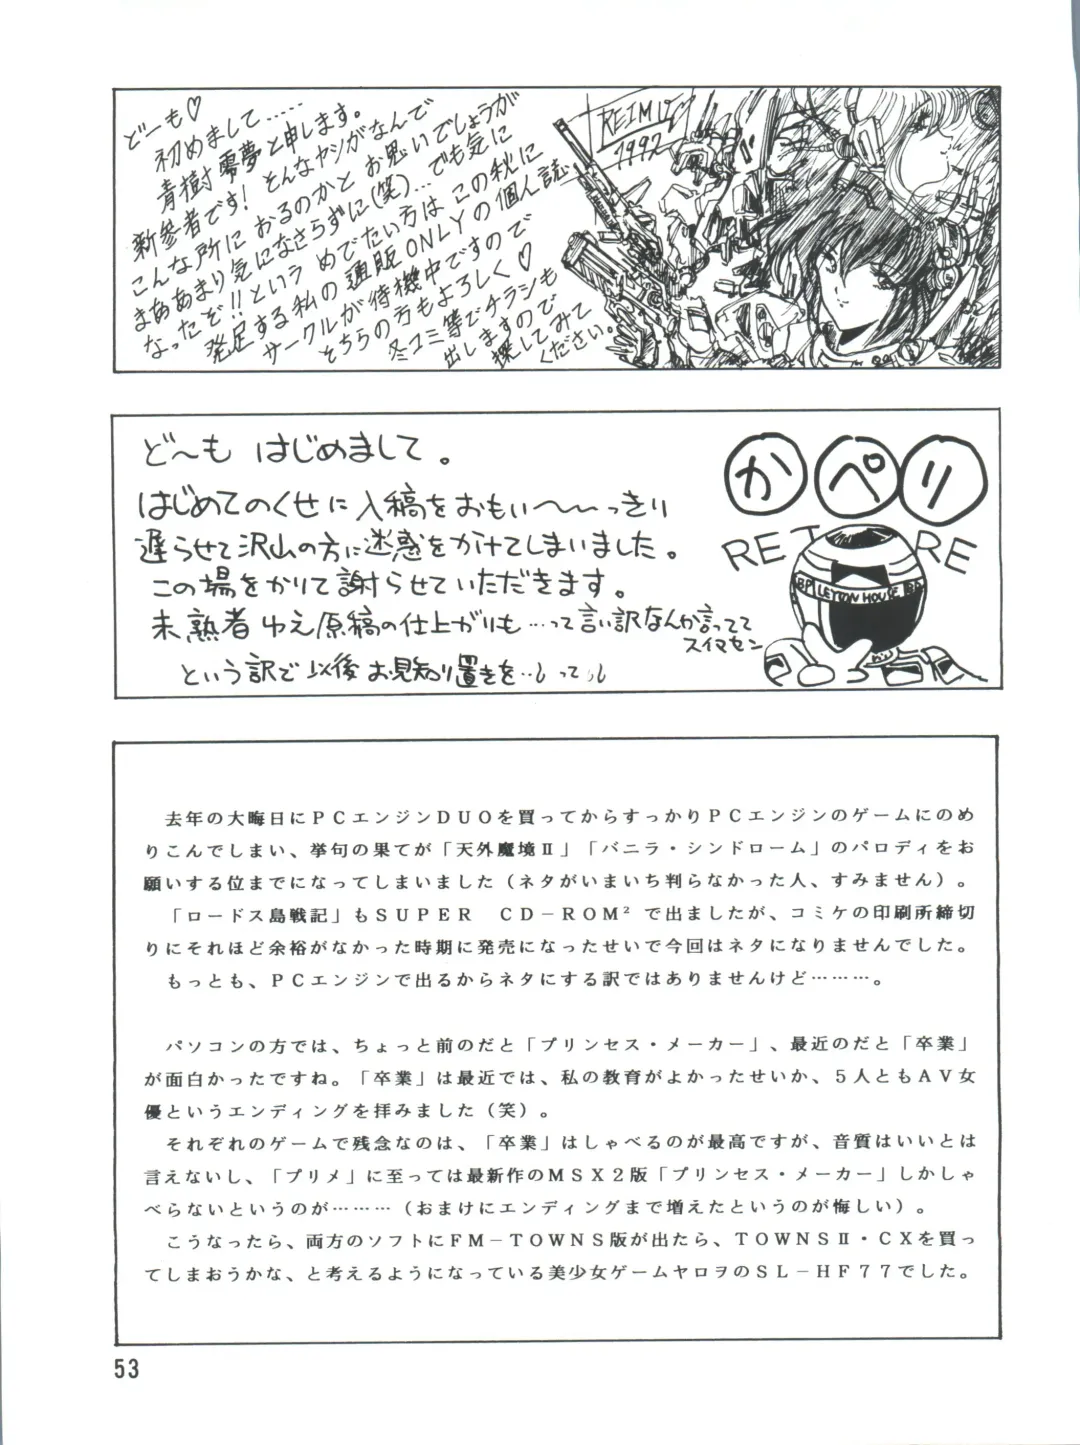 どーも♡
初めまして……
青樹零夢と申します。
新参者です! そんなヤツがなんで
こんな所に おるのかと お思いでしょうが
まああまり気になさらずに(笑)…でも気に
なったぞ!!という めでたい方は この秋に
発足する私の通販ONLYの個人誌
サークルが待機中ですので
そちらの方もよろしく♡
冬コミ等でチラシも
出しますので
探してみて
ください。
REIMU
1992
ど〜も はじめまして。
はじめてのくせに入稿をおもい〜〜っきり
遅らせて沢山の方に迷惑をかけてしまいました。
この場をかりて謝らせていただきます。
未熟者ゆえ原稿の仕上がりも…って言い訳なんか言ってて
スイマセン
という訳で以後お見知り置きを…
かぺり
RETIRE
BP LEYTON HOUSE
去年の大晦日にPCエンジンDUOを買ってからすっかりPCエンジンのゲームにのめ
りこんでしまい、挙句の果てが「天外魔境Ⅱ」「バニラ・シンドローム」のパロディをお
願いする位までになってしまいました(ネタがいまいち判らなかった人、すみません)。
「ロードス島戦記」もSUPER CD−ROM²で出ましたが、コミケの印刷所締切
りにそれほど余裕がなかった時期に発売になったせいで今回はネタになりませんでした。
もっとも、PCエンジンで出るからネタにする訳ではありませんけど………。
パソコンの方では、ちょっと前のだと「プリンセス・メーカー」、最近のだと「卒業」
が面白かったですね。「卒業」は最近では、私の教育がよかったせいか、5人ともAV女
優というエンディングを拝みました(笑)。
それぞれのゲームで残念なのは、「卒業」はしゃべるのが最高ですが、音質はいいとは
言えないし、「プリメ」に至っては最新作のMSX2版「プリンセス・メーカー」しかしゃ
べらないというのが………(おまけにエンディングまで増えたというのが悔しい)。
こうなったら、両方のソフトにFM−TOWNS版が出たら、TOWNSⅡ・CXを買っ
てしまおうかな、と考えるようになっている美少女ゲームヤロヲのSL−HF77でした。
53